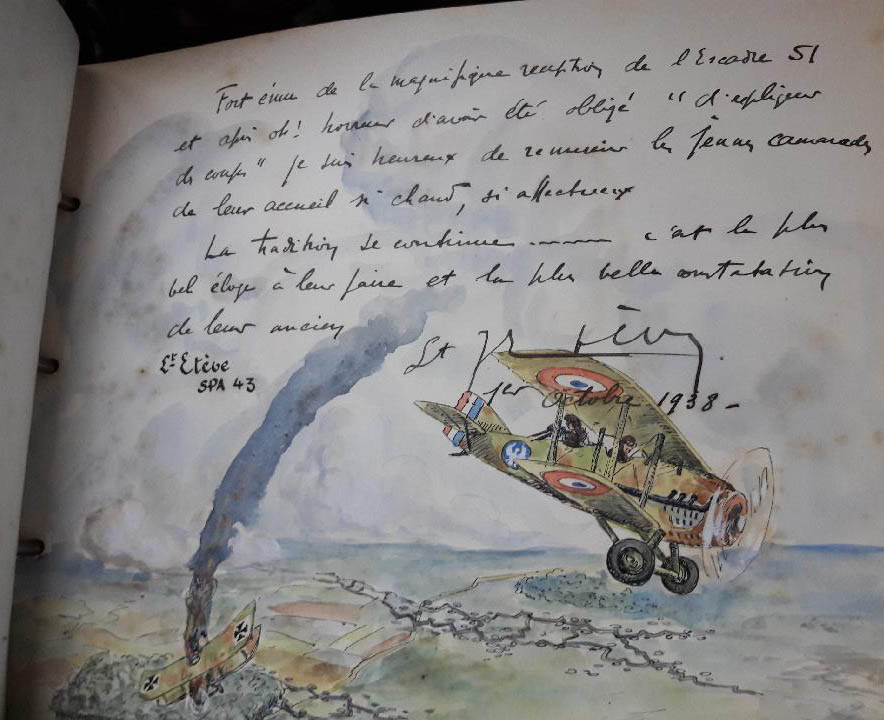 Fort ému de la magnifique réception de l'Escadre 51
et après oh! horreur d'avoir été obligé "d'expliquer
des coups" je suis heureux de remercier les jeunes camarades
de leur accueil si chaud, si affectueux
La tradition se continue ........ c'est le plus
bel éloge à leur faire et la plus belle constatation
de leur ancien
Lt Etève
1er Octobre 1938 -
Lt Etève
SPA 43